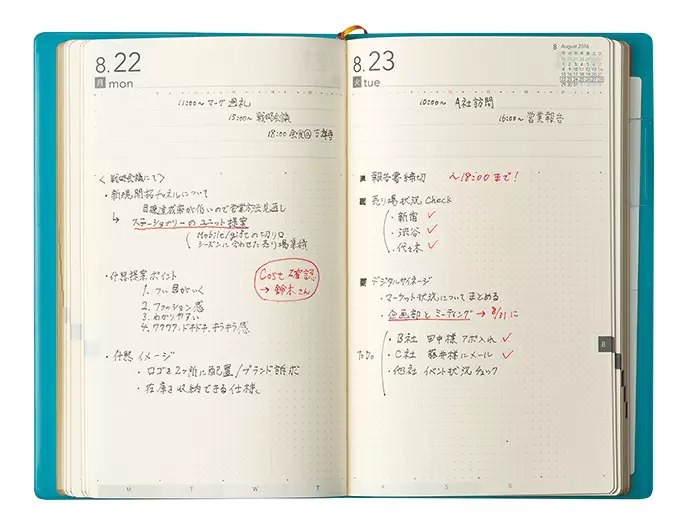 8.22
月 mon
11:00〜 マーケ 週礼
15:00〜 戦略会議
18:00 会食@吉祥寺
〈戦略会議にて〉
・新規開拓チャネルについて
目標達成率が低いので営業方法見直し
↳ ステーショナリーのユニット提案
Mobile/giftの切り口
シーズンに合わせた売り場集積
・什器提案ポイント
1. つい目がいく
2. ファッション感
3. わかりやすい
4. ワクワク、ドキドキ、キラキラ感
Cost 確認
→ 鈴木さん
・什器イメージ
・ロゴを2ヶ所に配置/ブランド訴求
・在庫を収納できる仕様。
M T W T
8.23
火 tue
8 August 2016
10:00〜 A社訪問
16:00〜 営業報告
報告書締切 〜18:00まで!
売り場状況 Check
・新宿 ✓
・渋谷 ✓
・代々木 ✓
デジタルサイネージ
・マーケット状況についてまとめる
・企画部とミーティング → 8/31に
ToDo
・B社 田中様 アポ入れ ✓
・C社 藤井様にメール ✓
・他社 イベント状況チェック
8
F S S